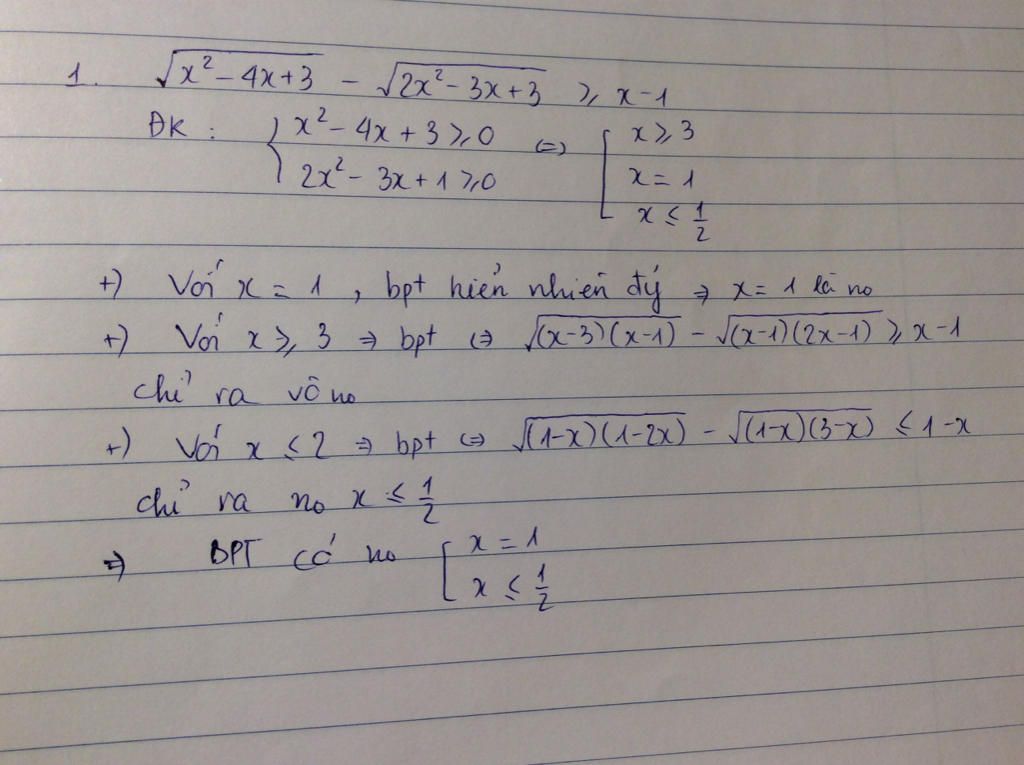 1. √(x² - 4x + 3) - √(2x² - 3x + 3) ≥ x - 1
ĐK : { x² - 4x + 3 ≥ 0 ⇔ [ x ≥ 3
2x² - 3x + 1 ≥ 0 x = 1
x ≤ 1/2
+) Với x = 1 , bpt hiển nhiên đý ⇒ x = 1 là no
+) Với x ≥ 3 ⇒ bpt ⇔ √((x-3)(x-1)) - √((x-1)(2x-1)) ≥ x-1
chỉ ra vô no
+) Với x ≤ 2 ⇒ bpt ⇔ √((1-x)(1-2x)) - √((1-x)(3-x)) ≤ 1-x
chỉ ra no x ≤ 1/2
⇒ BPT có no [ x = 1
x ≤ 1/2